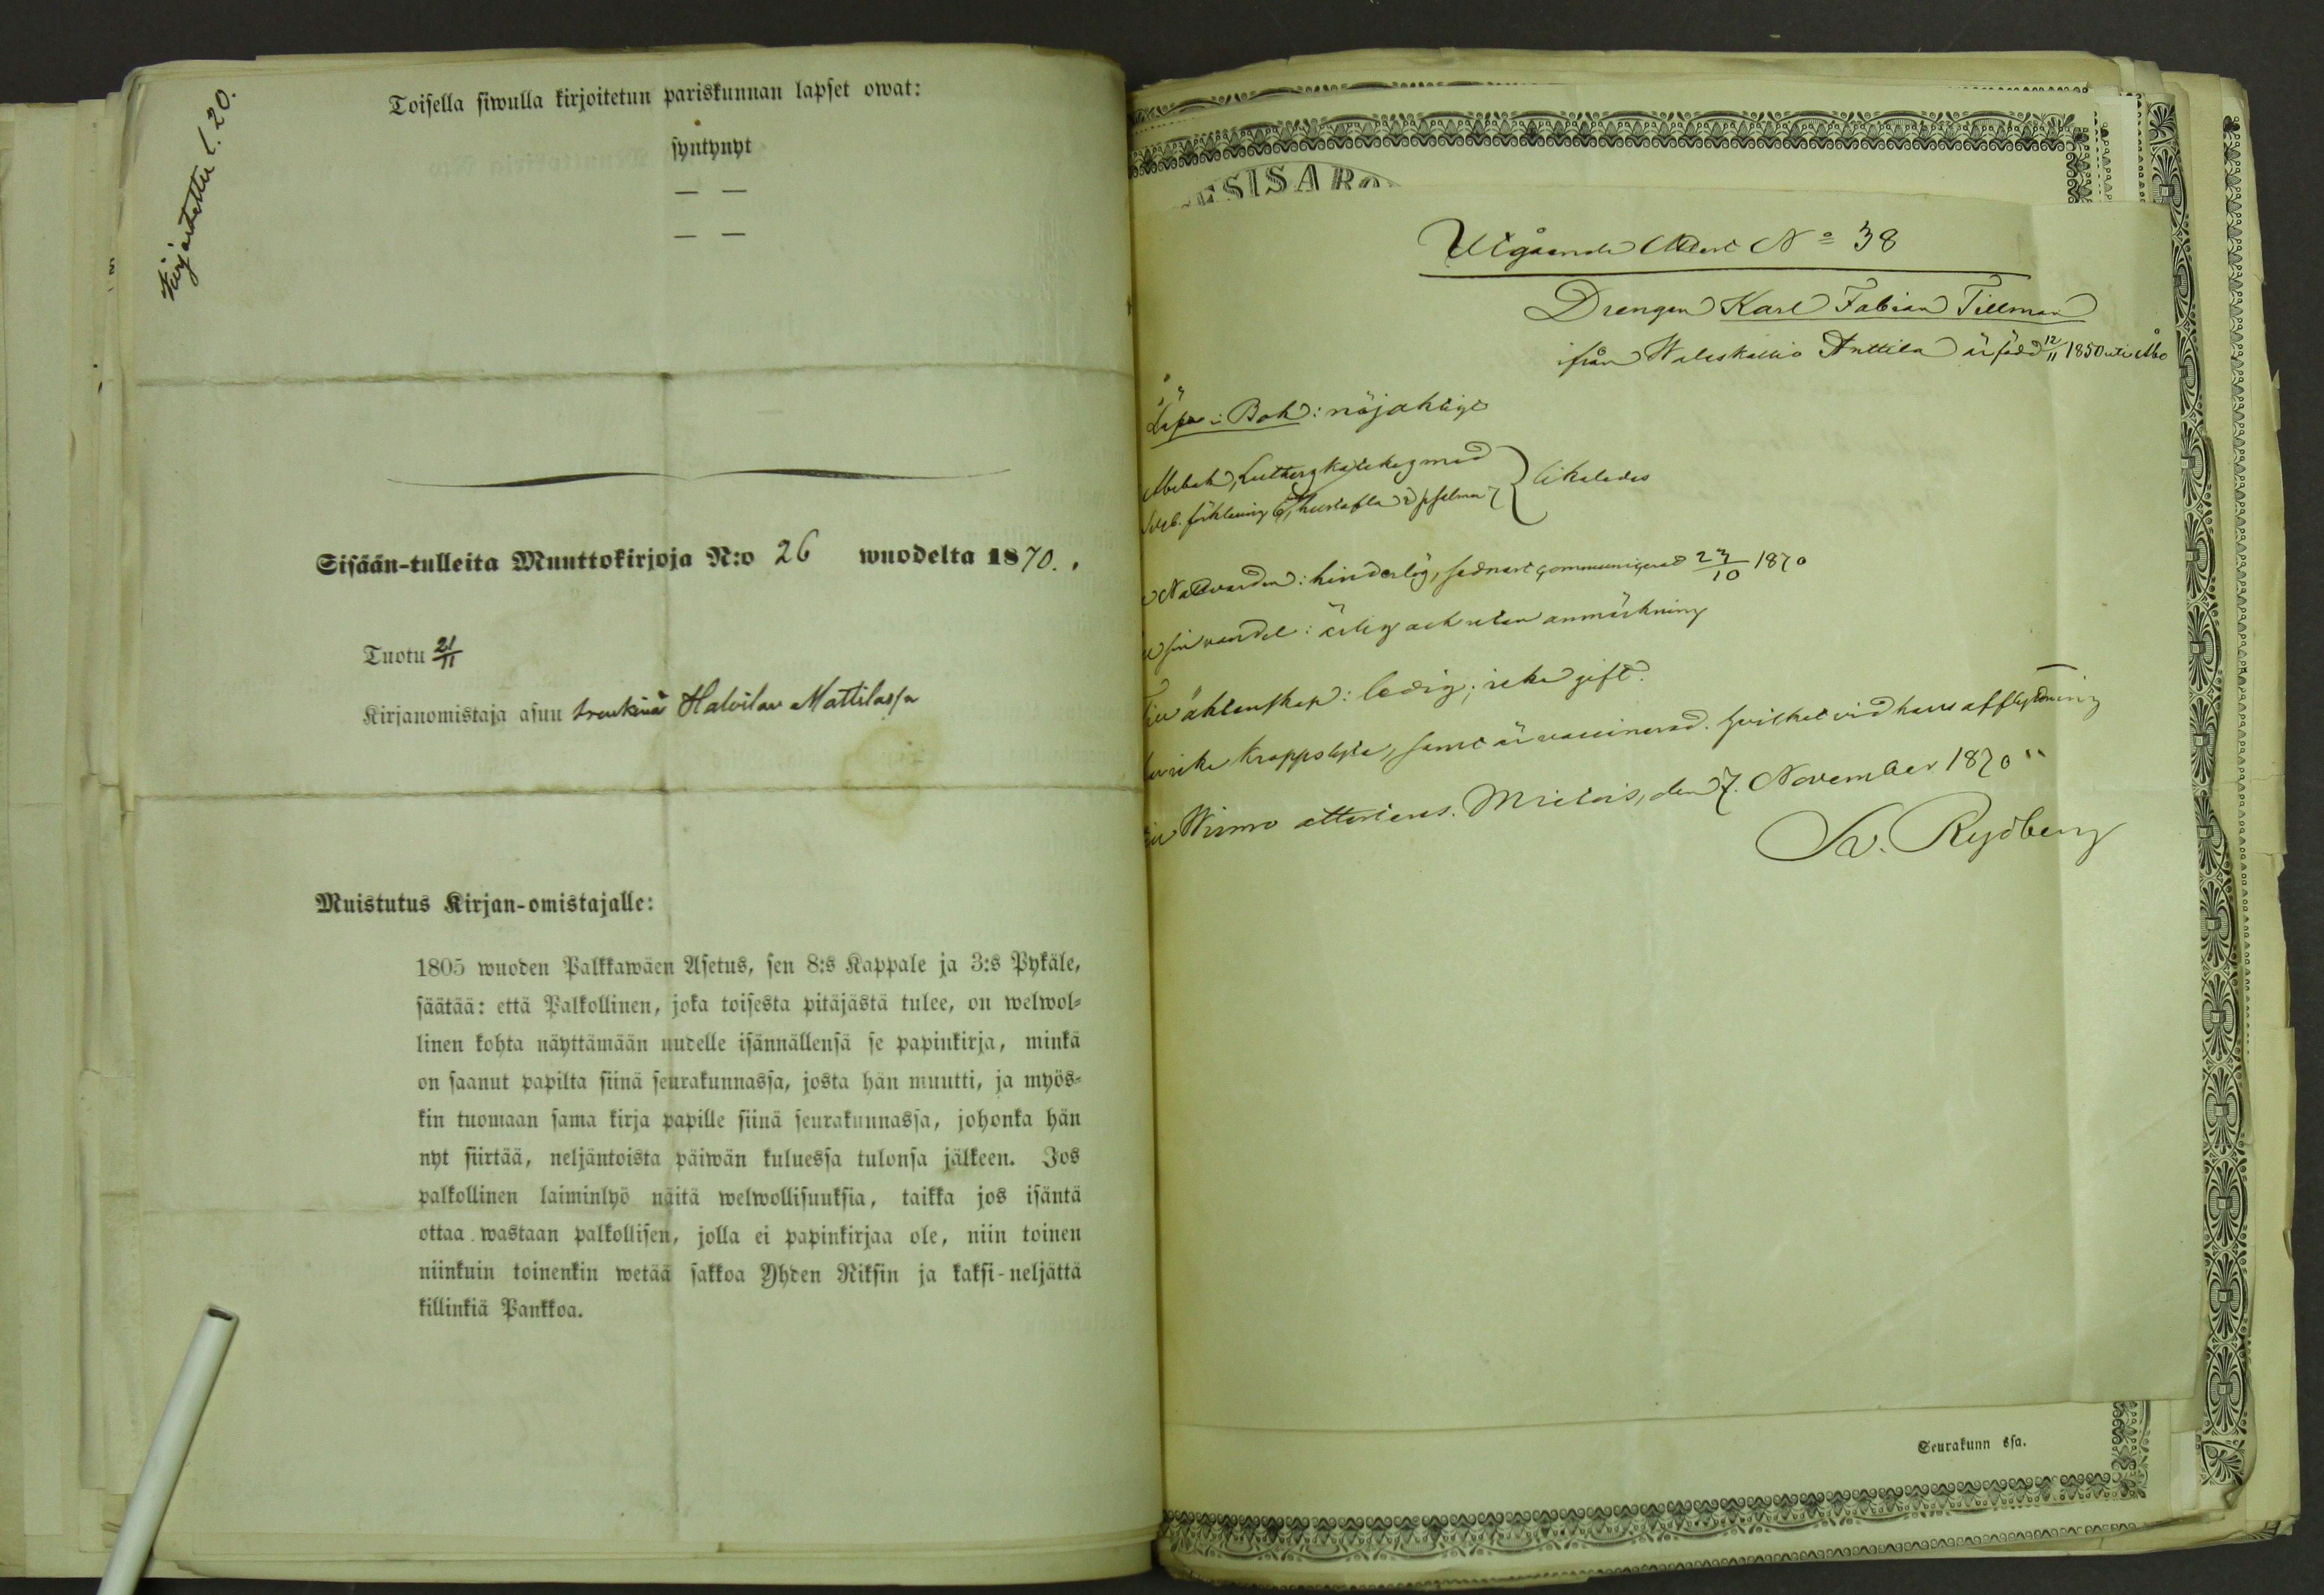 Kirjoitettu l. 20.
Toisella siwulla kirjoitetun pariskunnan lapset owat:
syntynyt
— —
— —
Sisään-tulleita Muuttokirjoja N:o 26 wuodelta 1870.
Tuotu 21/11
Kirjanomistaja asuu trenkinä Halvilan Mattilassa
Muistutus Kirjan-omistajalle:
1805 wuoden Palkkawäen Asetus, sen 8:s Kappale ja 3:s Pykäle,
säätää: että Palkollinen, joka toisesta pitäjästä tulee, on welwol-
linen kohta näyttämään uudelle isännällensä se papinkirja, minkä
on saanut papilta siinä seurakunnassa, josta hän muutti, ja myös-
kin tuomaan sama kirja papille siinä seurakunnassa, johonka hän
nyt siirtää, neljäntoista päiwän kuluessa tulonsa jälkeen. Jos
palkollinen laiminlyö näitä welwollisuuksia, taikka jos isäntä
ottaa wastaan palkollisen, jolla ei papinkirjaa ole, niin toinen
niinkuin toinenkin wetää sakkoa Yhden Riksin ja kaksi-neljättä
killinkiä Pankkoa.
ESISARO
Utgående Attest No 38
Drengen Karl Fabian Tillman
ifrån Walaskallio Anttila är född 12/11 1850 uti Åbo
Läser i Bok: nöjaktigt
Abcbok, Luthers katekes med
förklaring, hustafla & psalmer } likaledes
Nattvarden: hinderlös, sednast communicerad 23/10 1870
sin vandel: ärlig och utan anmärkning
äktenskap: ledig, icke gift.
icke kroppslyte, samt är vaccinerad. hvilket vid hans afflyttning
Wirmo attesteras. Mietois, den 7. November 1870
Sv. Rydberg
Seurakunn ssa.